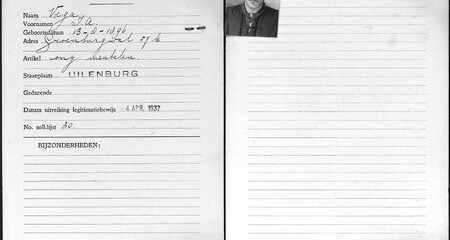 Naam Vega,
Voornamen J.A.
Geboortedatum 13-8-1896
Adres Groenburgwal 57 b
Artikel ong. meubelen.
Staanplaats UILENBURG
Gedurende
Datum uitreiking legitimatiebewijs -4 APR. 1937
No. soll.lijst 30.
BIJZONDERHEDEN: